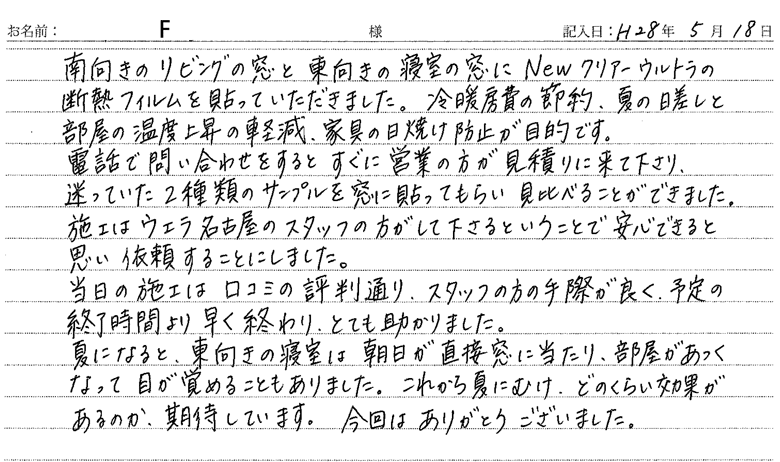 お名前： F 様 記入日：H28年 5月 18日
南向きのリビングの窓と東向きの寝室の窓にNewクリアーウルトラの
断熱フィルムを貼っていただきました。冷暖房費の節約、夏の日差しと
部屋の温度上昇の軽減、家具の日焼け防止が目的です。
電話で問い合わせをするとすぐに営業の方が見積りに来て下さり、
迷っていた2種類のサンプルを窓に貼ってもらい見比べることができました。
施工はウェラ名古屋のスタッフの方がして下さるということで安心できると
思い依頼することにしました。
当日の施工は口コミの評判通り、スタッフの方の手際が良く、予定の
終了時間より早く終わり、とても助かりました。
夏になると、東向きの寝室は朝日が直接窓に当たり、部屋があつく
なって目が覚めることもありました。これから夏にむけ、どのくらい効果が
あるのか、期待しています。今回はありがとうございました。